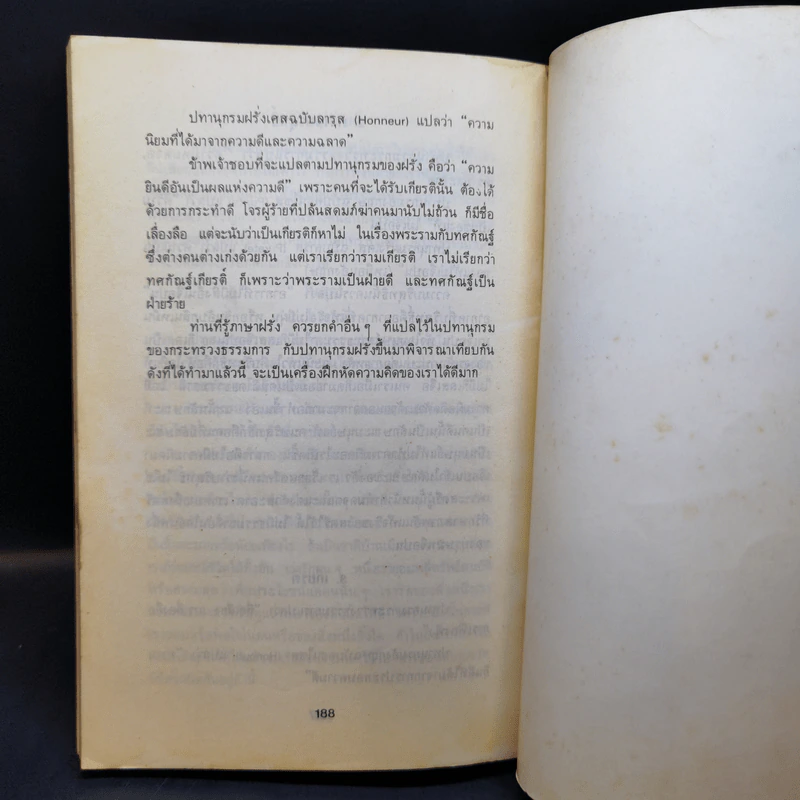 ปทานุกรมฝรั่งเศสฉบับลารุส (Honneur) แปลว่า “ความ
นิยมที่ได้มาจากความดีและความฉลาด”
ข้าพเจ้าชอบที่จะแปลตามปทานุกรมของฝรั่ง คือว่า “ความ
ยินดีอันเป็นผลแห่งความดี” เพราะคนที่จะได้รับเกียรตินั้น ต้องได้
ด้วยการกระทำดี โจรผู้ร้ายที่ปล้นสดมภ์ฆ่าคนมานับไม่ถ้วน ก็มีชื่อ
เลื่องลือ แต่จะนับว่าเป็นเกียรติก็หาไม่ ในเรื่องพระรามกับทศกัณฐ์
ซึ่งต่างคนต่างเก่งด้วยกัน แต่เราเรียกว่ารามเกียรติ เราไม่เรียกว่า
ทศกัณฐ์เกียรติ์ ก็เพราะว่าพระรามเป็นฝ่ายดี และทศกัณฐ์เป็น
ฝ่ายร้าย
ท่านที่รู้ภาษาฝรั่ง ควรยกคำอื่น ๆ ที่แปลไว้ในปทานุกรม
ของกระทรวงธรรมการ กับปทานุกรมฝรั่งขึ้นมาพิจารณาเทียบกัน
ดังที่ได้ทำมาแล้วนี้ จะเป็นเครื่องฝึกหัดความคิดของเราได้ดีมาก
188